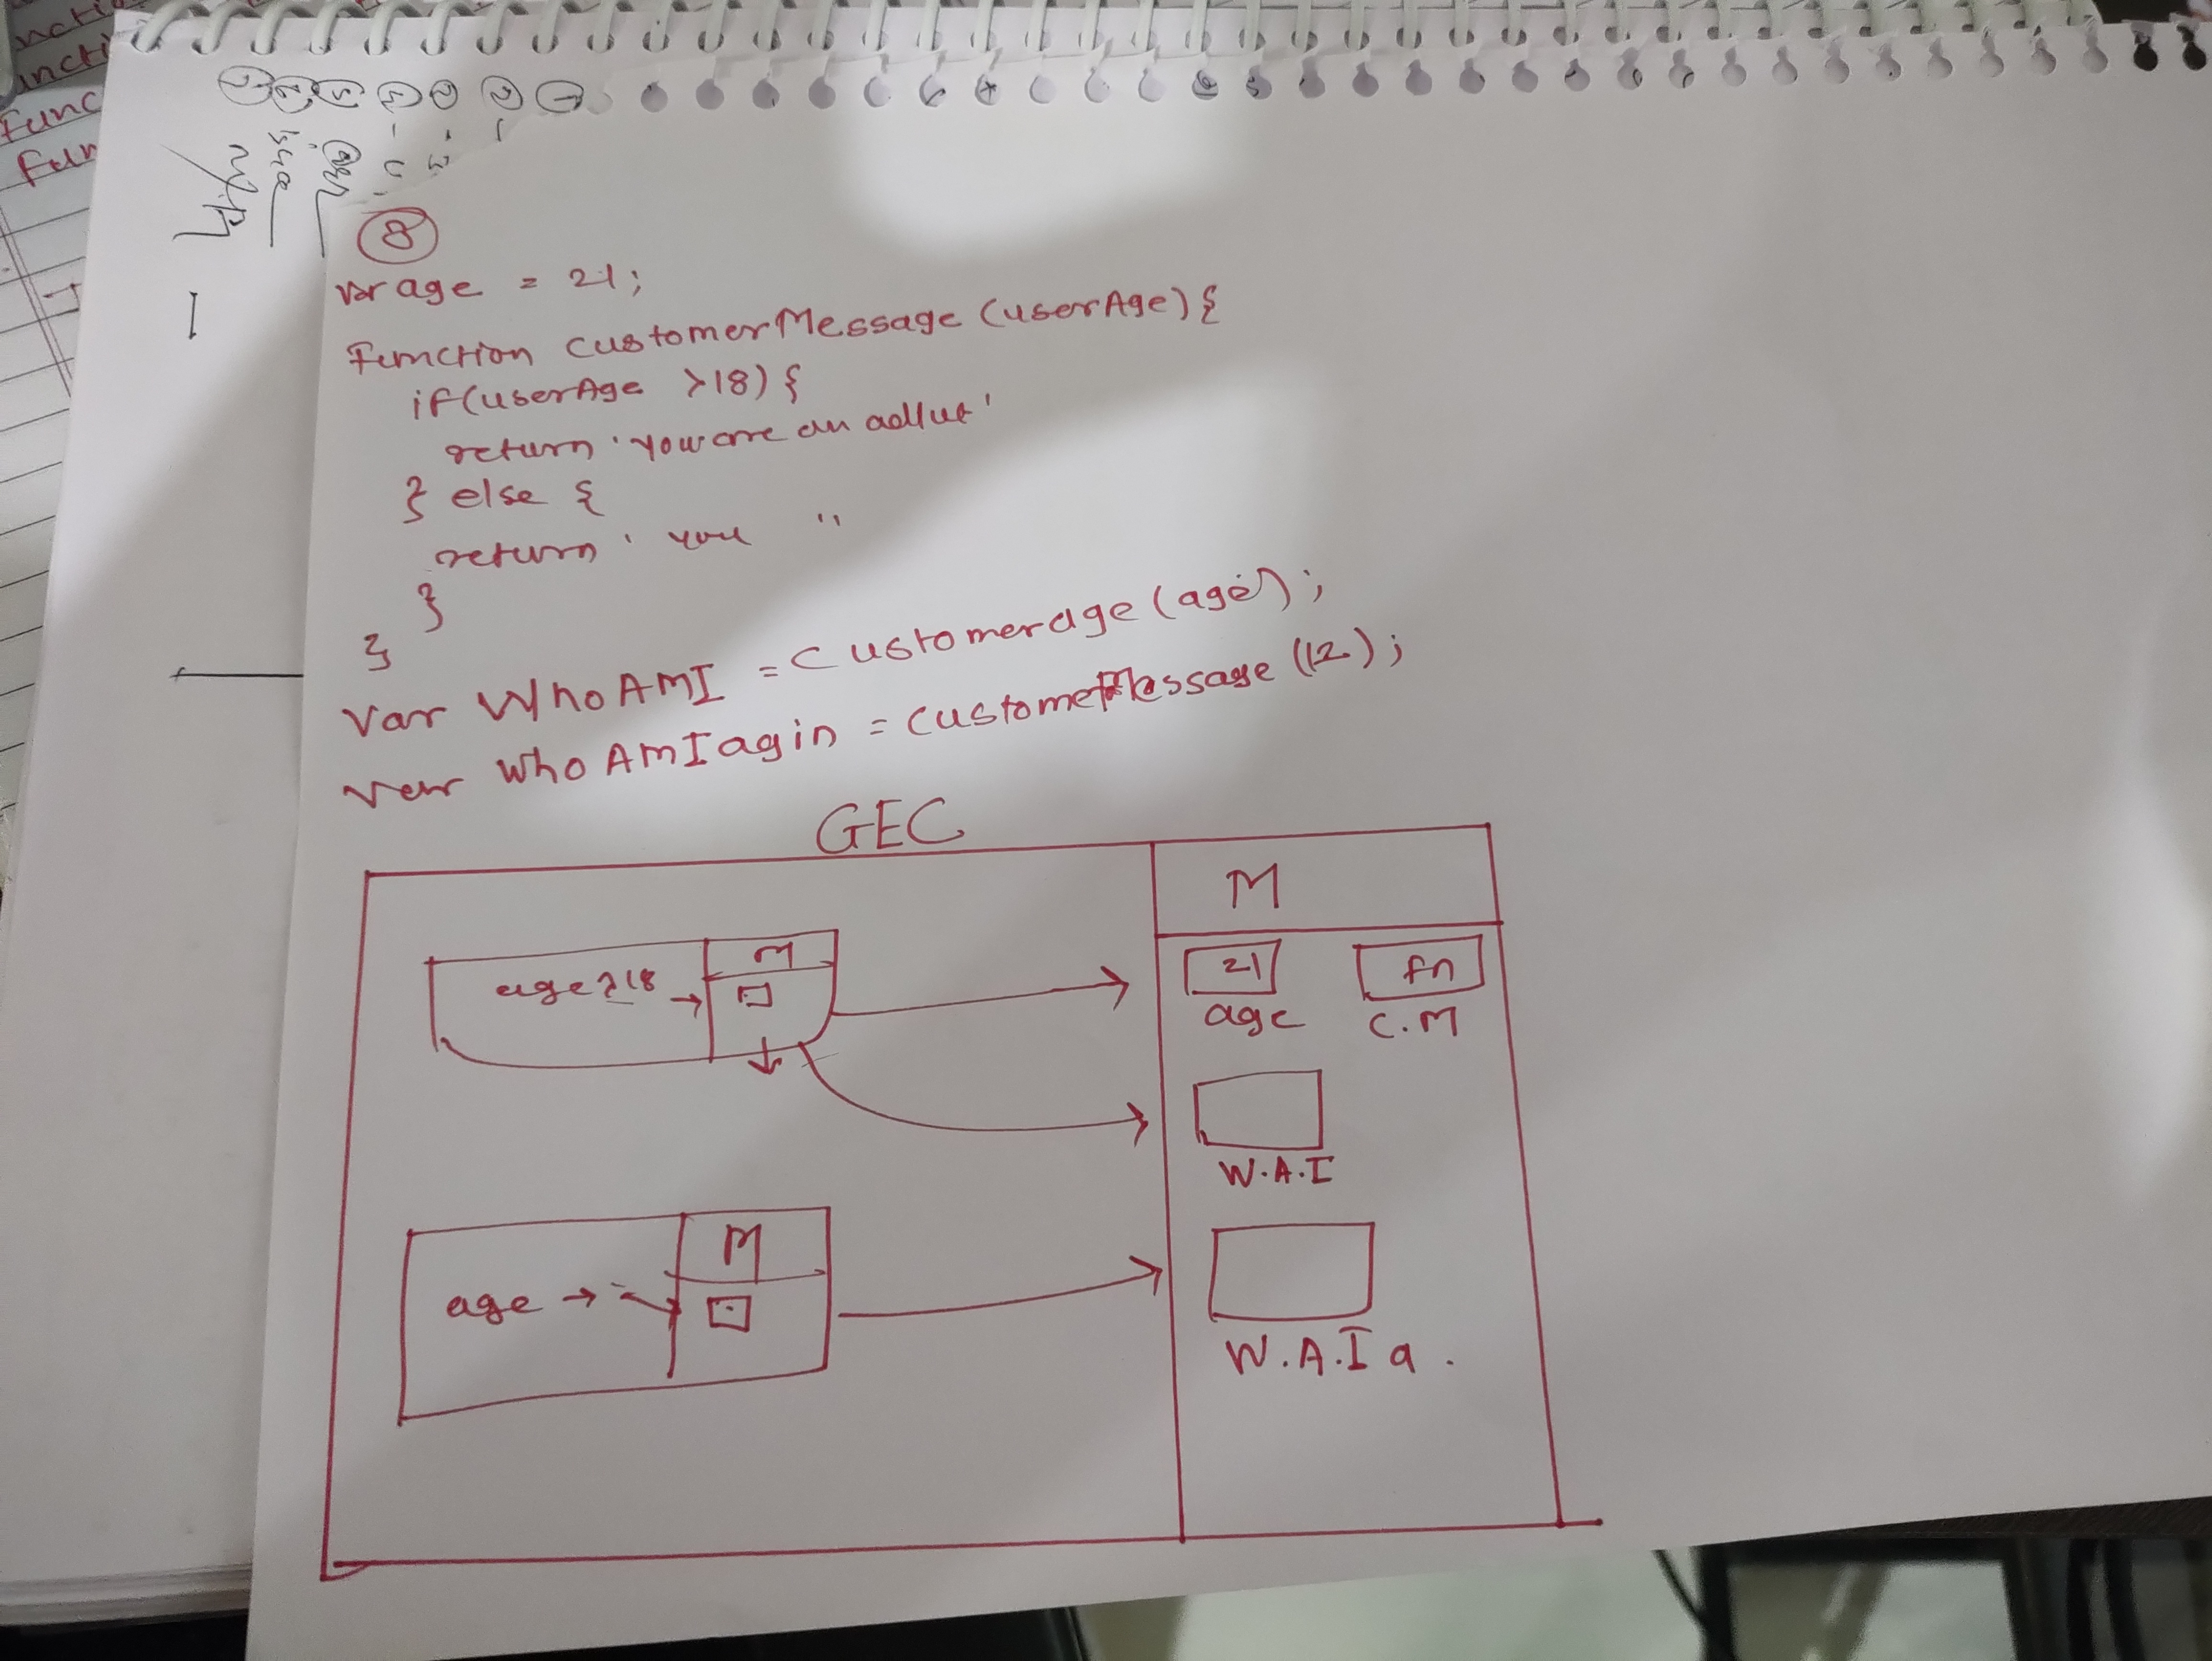 nction
func
Fun
8
var age = 21;
Function customerMessage (userAge) {
if(userAge >18) {
return 'You are an adlut'
} else {
return ' you "
}
}
Var WhoAMI = Customerage (age);
Var Who AMIagin = customerMessage (12);
GEC
M
M
age>18 →
21
fn
age
C.M
W.A.I
M
age →
W.A.I a .